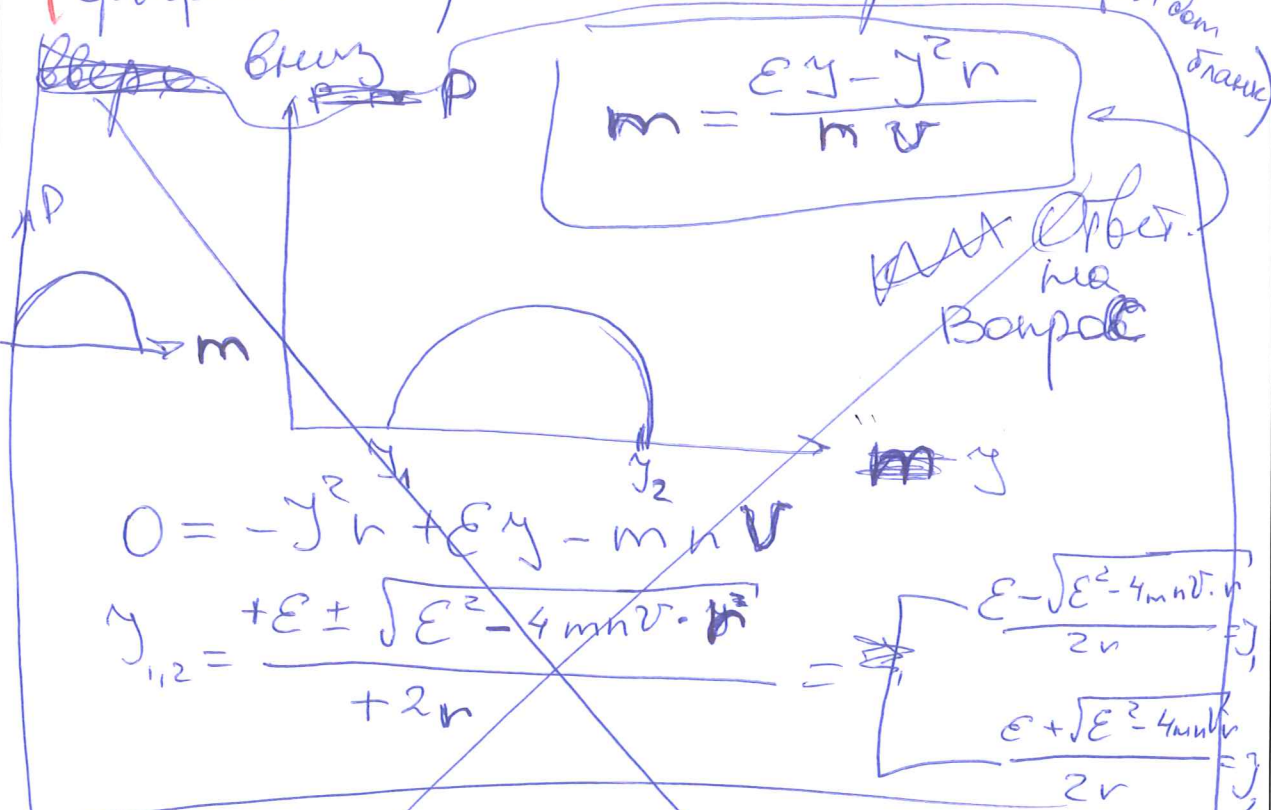 вверх
вниз
P
m = (Ɛy − y²r) / (m v)
бланк)
P
Ответ
на
Вопрос
m
y
y₁
y₂
0 = −y²r + Ɛy − m n v
y₁,₂ = (+Ɛ ± √(Ɛ² − 4mnv·r)) / (+2r) =
(Ɛ − √(Ɛ² − 4mnv·r)) / (2r) = y₁
(Ɛ + √(Ɛ² − 4mnvr)) / (2r) = y₂